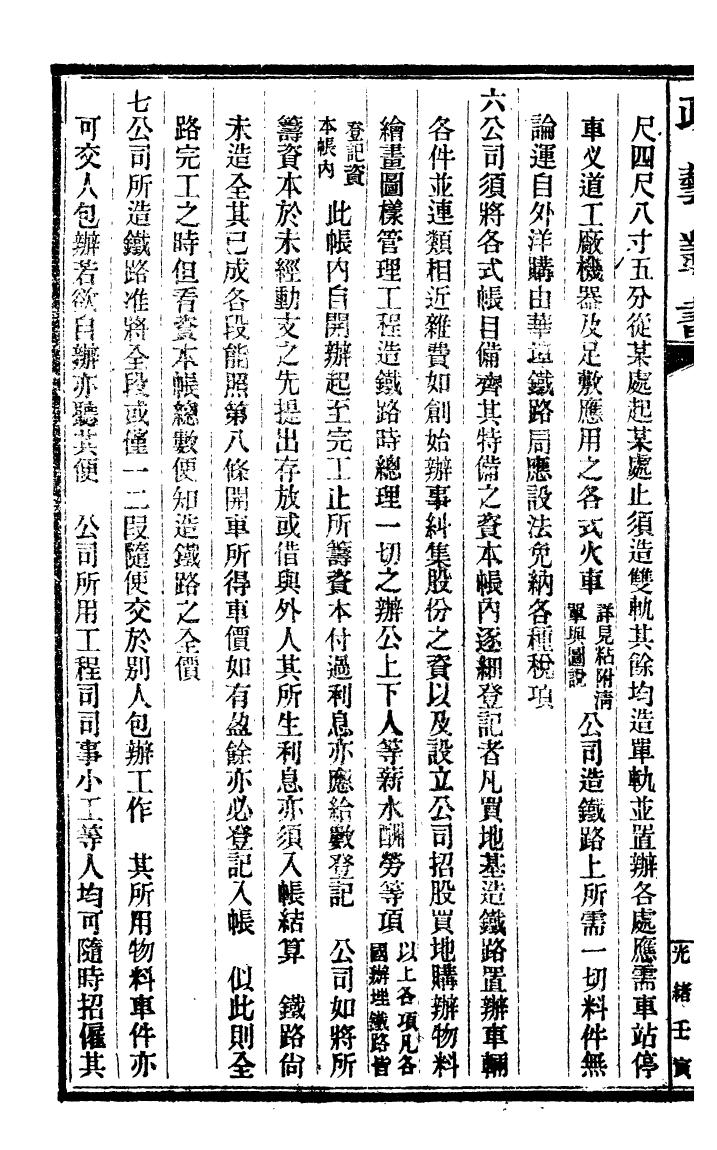 政藝叢書
光緒壬寅
尺四尺八寸五分從某處起某處止須造雙軌其餘均造單軌並置辦各處應需車站停
車义道工廠機器及足敷應用之各式火車詳見粘附清單與圖說 公司造鐵路上所需一切料件無
論運自外洋購由華境鐵路局應設法免納各種稅項
六公司須將各式帳目備齊其特備之資本帳內逐細登記者凡買地基造鐵路置辦車輛
各件並連類相近雜費如創始辦事糾集股份之資以及設立公司招股買地購辦物料
繪畫圖樣管理工程造鐵路時總理一切之辦公上下人等薪水酬勞等項以上各項凡各國辦理鐵路皆
登記資本帳內 此帳內自開辦起至完工止所籌資本付過利息亦應給數登記 公司如將所
籌資本於未經動支之先提出存放或借與外人其所生利息亦須入帳結算 鐵路尙
未造全其已成各段能照第八條開車所得車價如有盈餘亦必登記入帳 似此則全
路完工之時但看資本帳總數便知造鐵路之全價
七公司所造鐵路准將全段或僅一二段隨便交於別人包辦工作 其所用物料車件亦
可交人包辦若欲自辦亦聽其便 公司所用工程司司事小工等人均可隨時招僱其